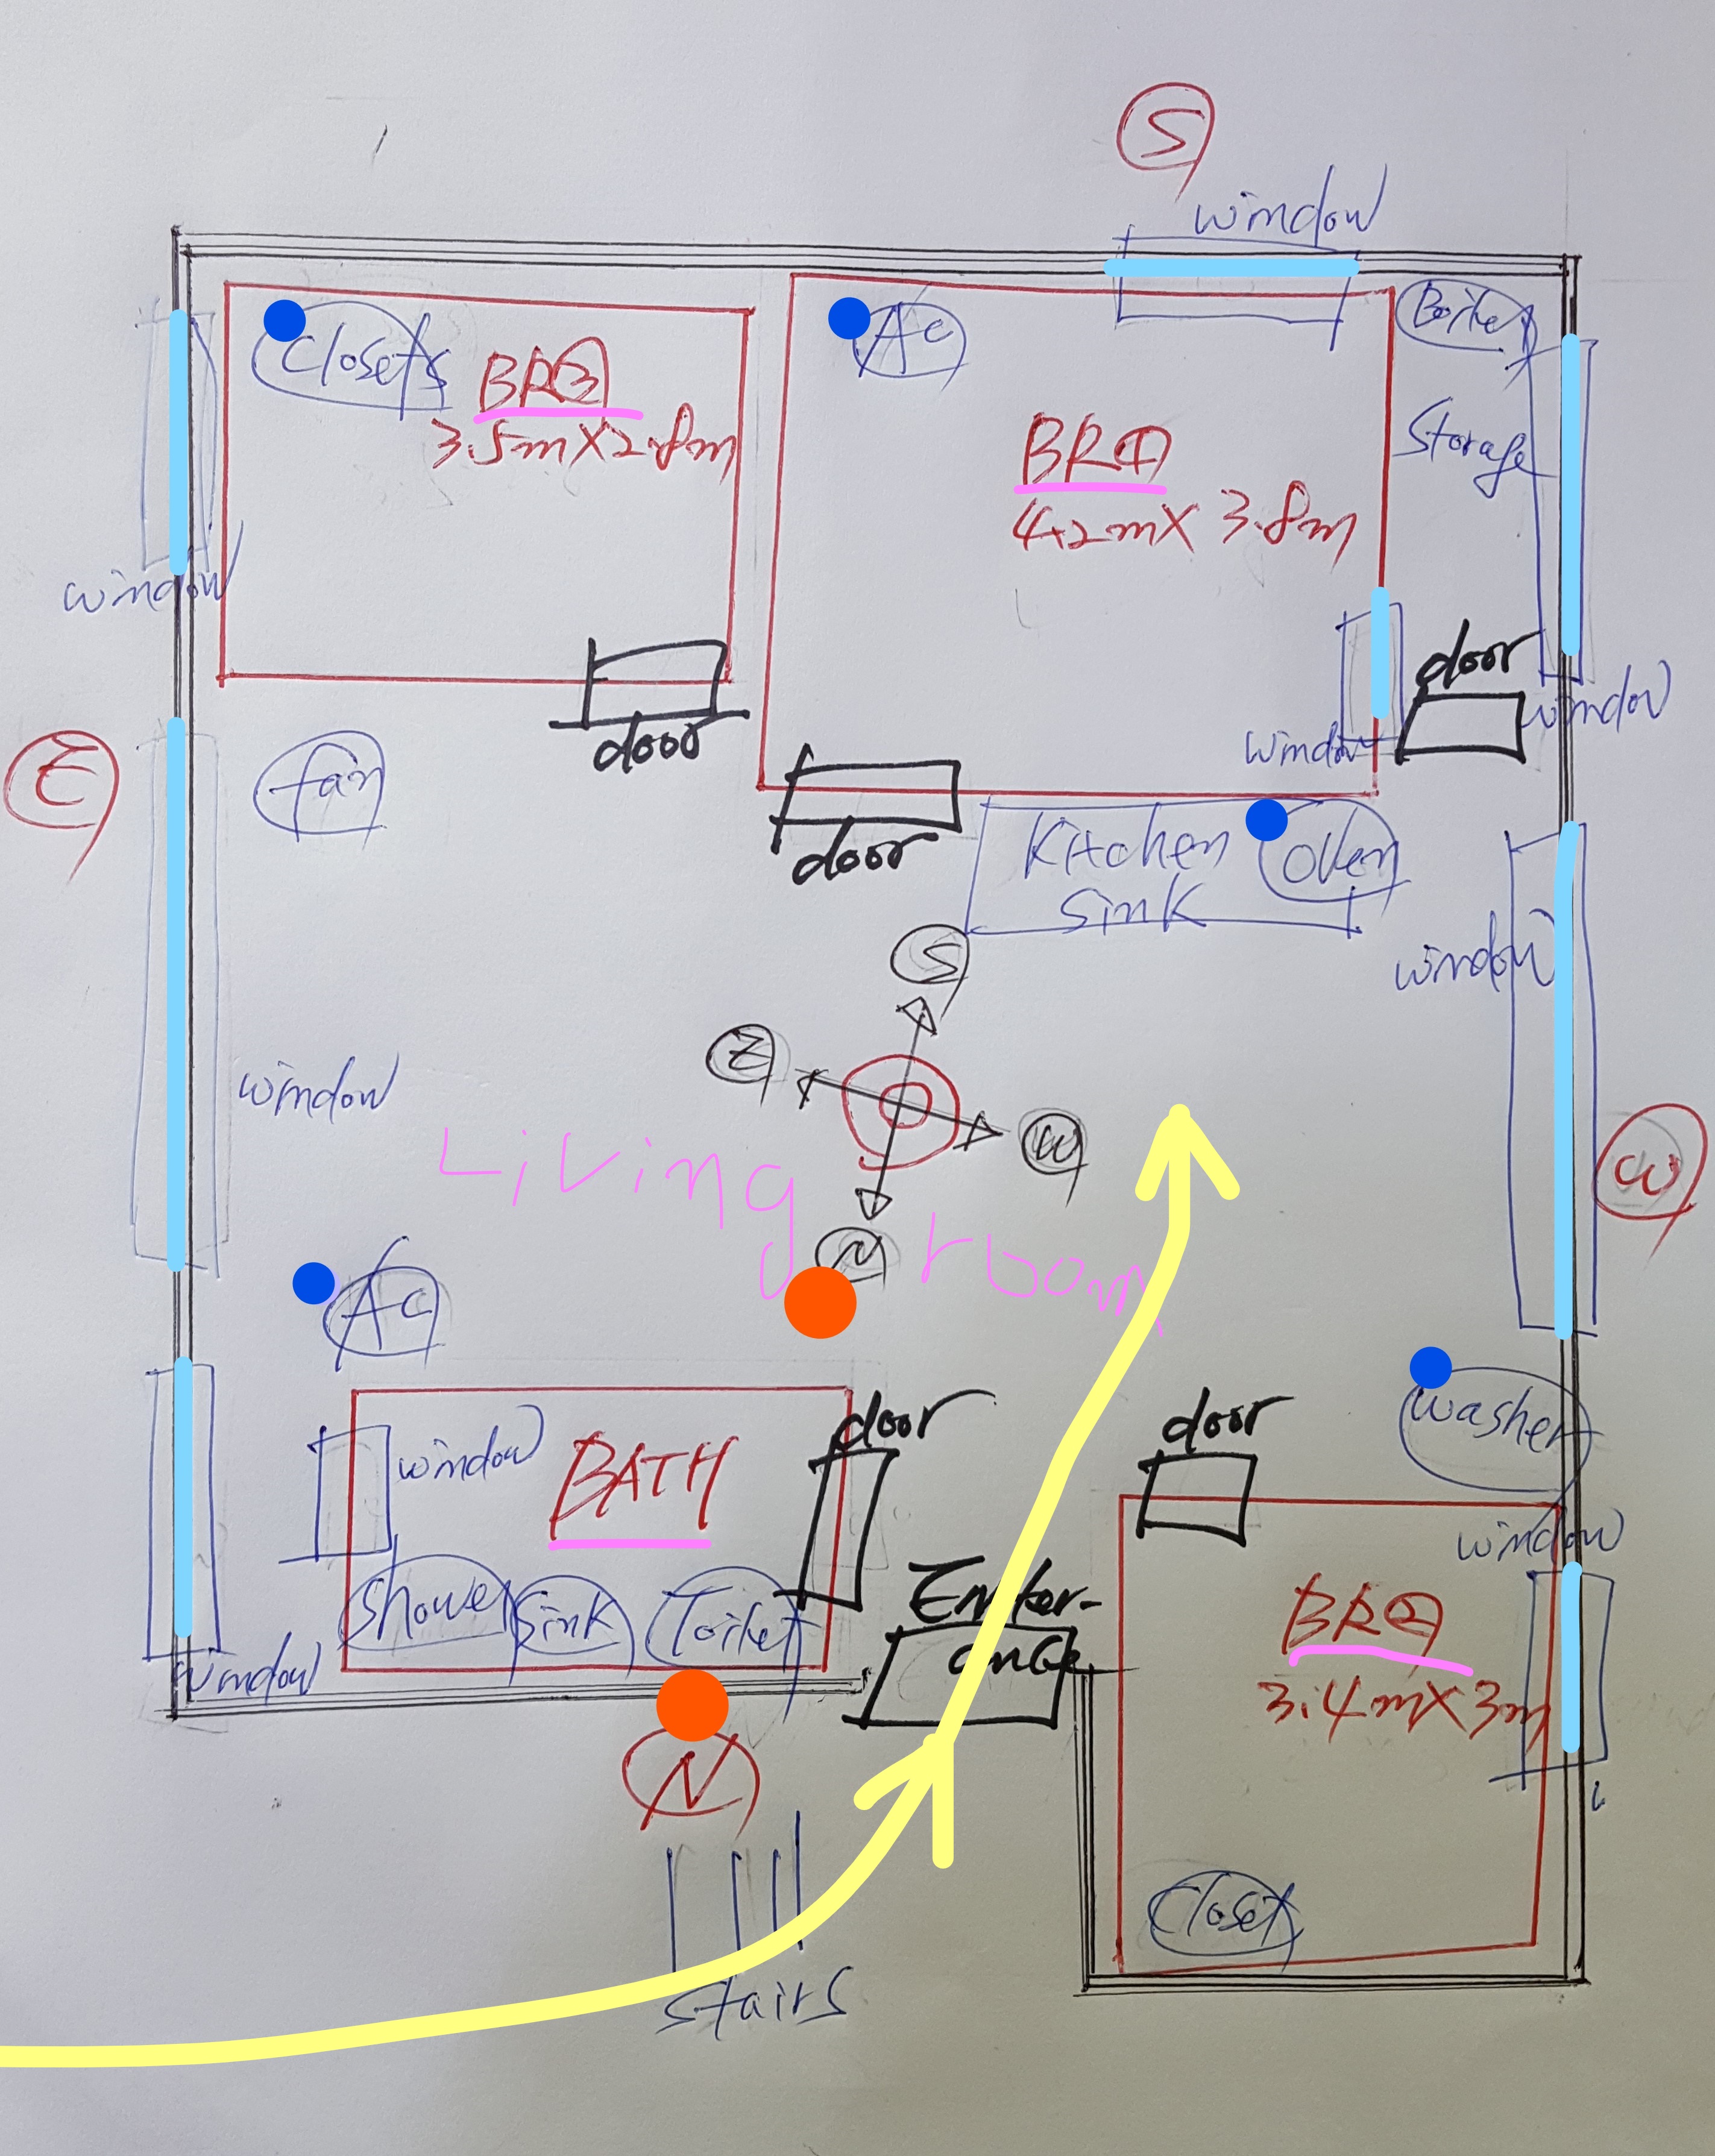 S
window
Closets
BR③
3.5m X 2.8m
AC
Boiler
BR①
4.2m X 3.8m
Storage
window
door
door
window
window
E
fan
door
Kitchen
Sink
Oven
window
S
E
W
N
window
Living room
W
AC
door
door
washer
window
BATH
window
Shower
Sink
Toilet
Enter-
ance
BR②
3.4m X 3m
window
N
Closet
Stairs